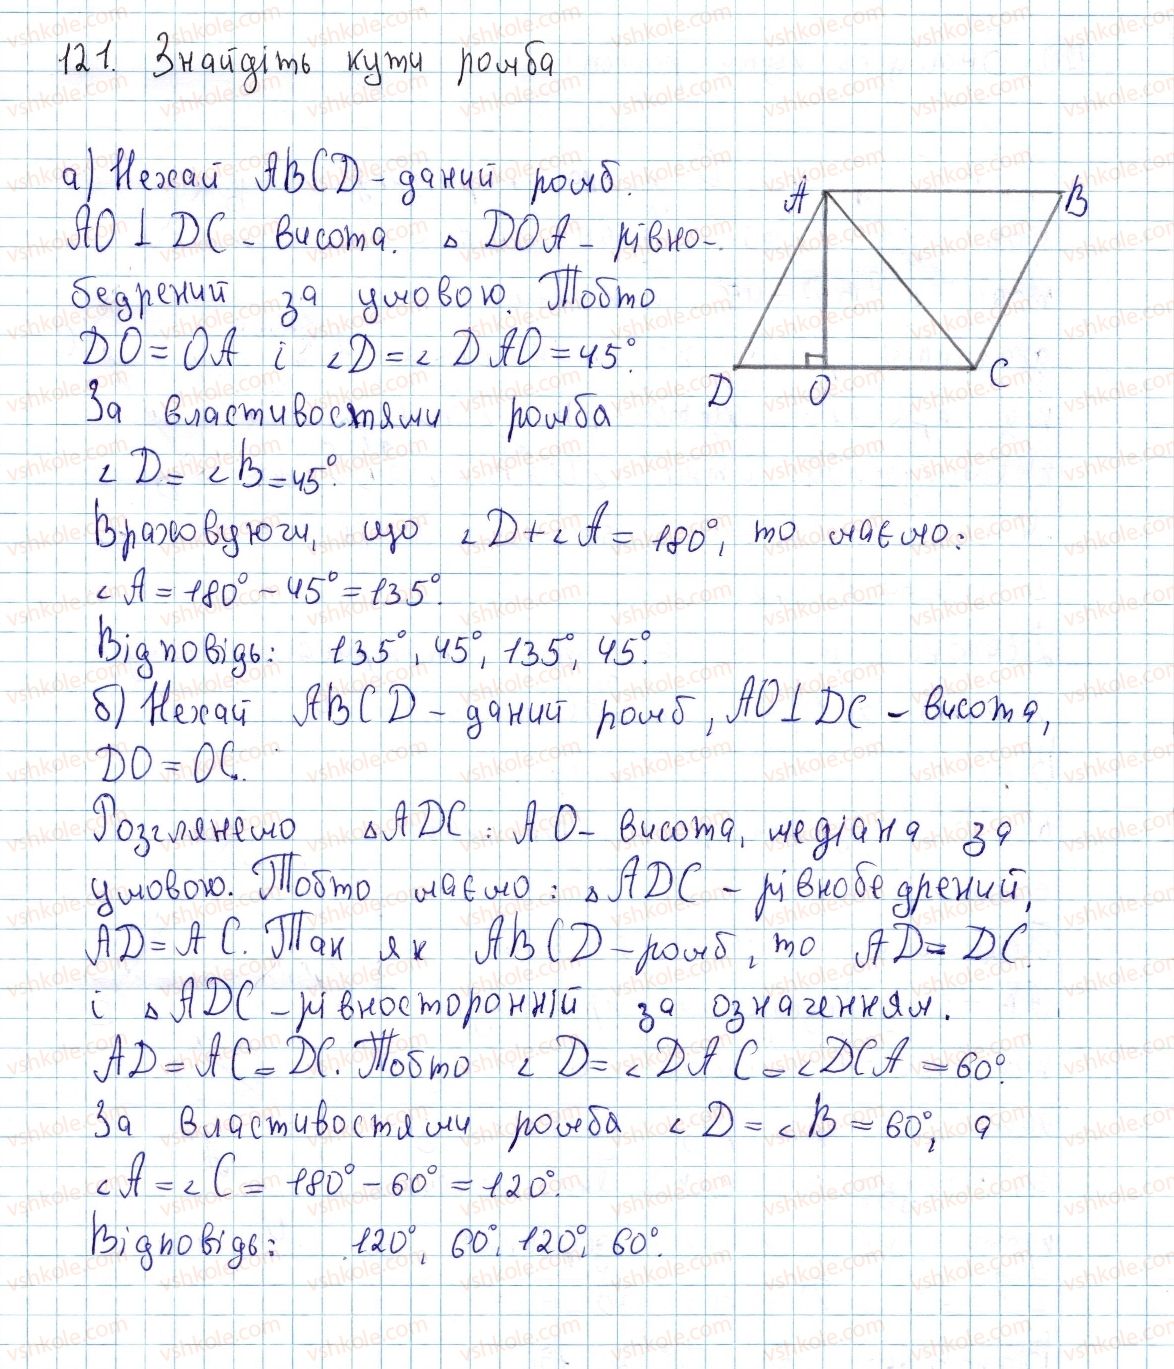 121. Знайдіть кути ромба
а) Нехай ABCD - даний ромб.
AO⊥DC - висота. △ DOA - рівно-
бедрений за умовою. Тобто
DO = OA і ∠D = ∠DAO = 45°.
За властивостями ромба
∠D = ∠B = 45°.
Враховуючи, що ∠D + ∠A = 180°, то маємо:
∠A = 180° - 45° = 135°.
Відповідь: 135°, 45°, 135°, 45°.
б) Нехай ABCD - даний ромб, AO⊥DC - висота,
DO = OC.
Розглянемо △ADC: AO - висота, медіана за
умовою. Тобто маємо: △ADC - рівнобедрений,
AD = AC. Так як ABCD - ромб, то AD = DC
і △ADC - рівносторонній за означенням.
AD = AC = DC. Тобто ∠D = ∠DAC = ∠DCA = 60°.
За властивостями ромба ∠D = ∠B = 60°, а
∠A = ∠C = 180° - 60° = 120°.
Відповідь: 120°, 60°, 120°, 60°.
A
B
D
O
C
vshkole.com